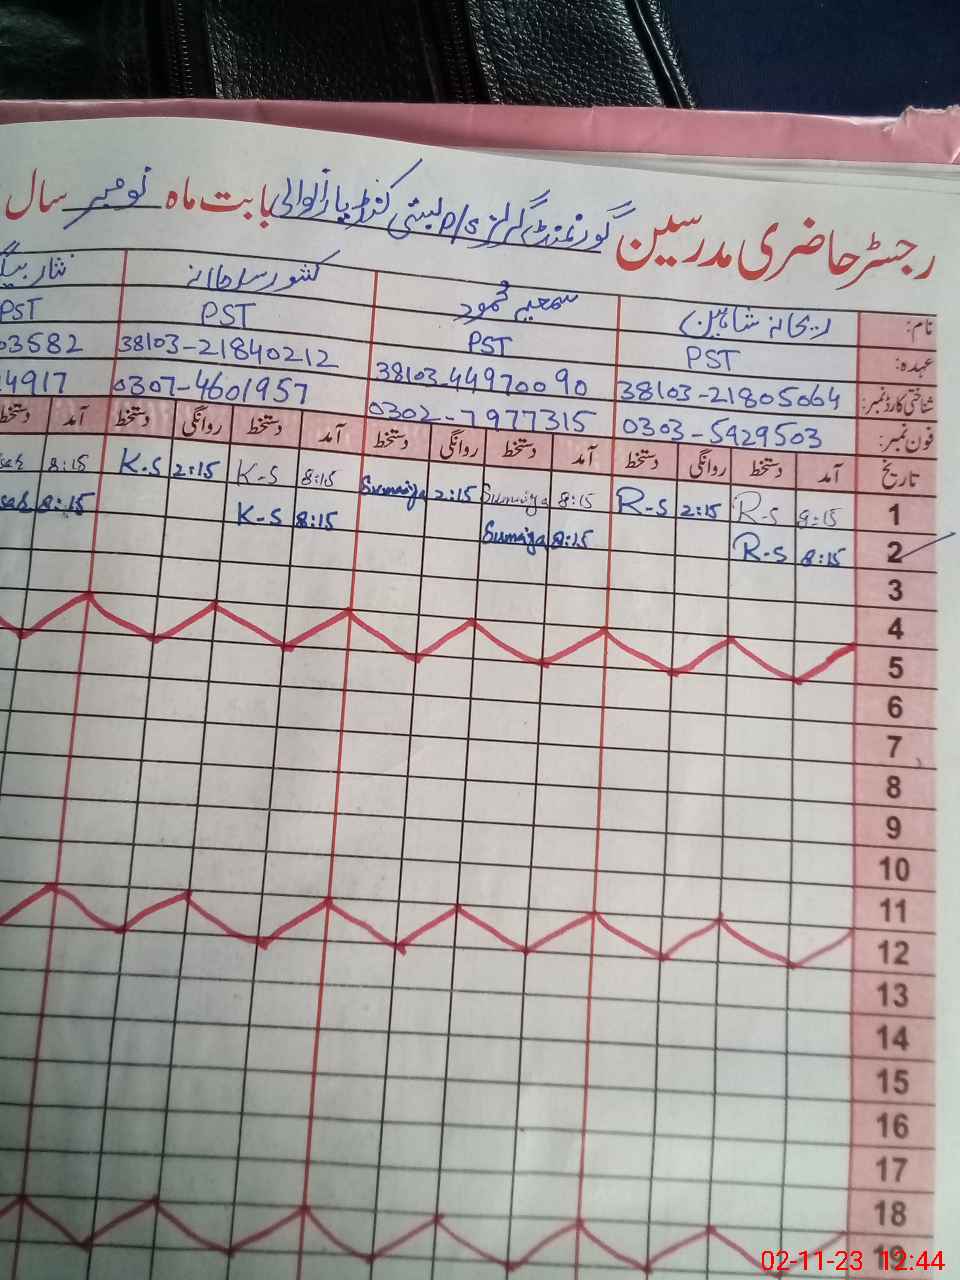 رجسٹر حاضری مدرسین گورنمنٹ گرلز p/s بستی کنڈیارانوالی بابت ماہ نومبر سال
نام: ریحانہ شاہین سمعیہ محمود کشور سلطانہ نثار بیگ
عہدہ: PST PST PST PST
شناختی کارڈ نمبر: 38103-21805064 38103-44970090 38103-21840212 03582
فون نمبر: 0303-5429503 0302-7977315 0307-4601957 4917
تاریخ آمد دستخط روانگی دستخط آمد دستخط روانگی دستخط آمد دستخط روانگی دستخط آمد دستخط
1 8:15 R-S 2:15 R-S 8:15 Sumaiya 2:15 Sumaiya 8:15 K-S 2:15 K-S 8:15
2 8:15 R-S 8:15 Sumaiya 8:15 K-S 8:15
3
4
5
6
7
8
9
10
11
12
13
14
15
16
17
18
19
02-11-23 12:44